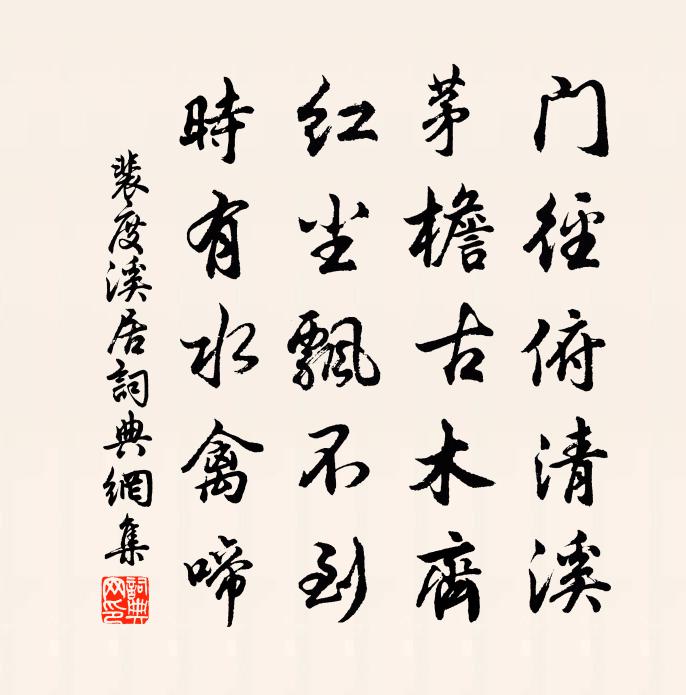 門徑俯清溪
茅檐古木齊
紅尘飄不到
時有水禽啼
裴度溪居詞典網集
詞典网印